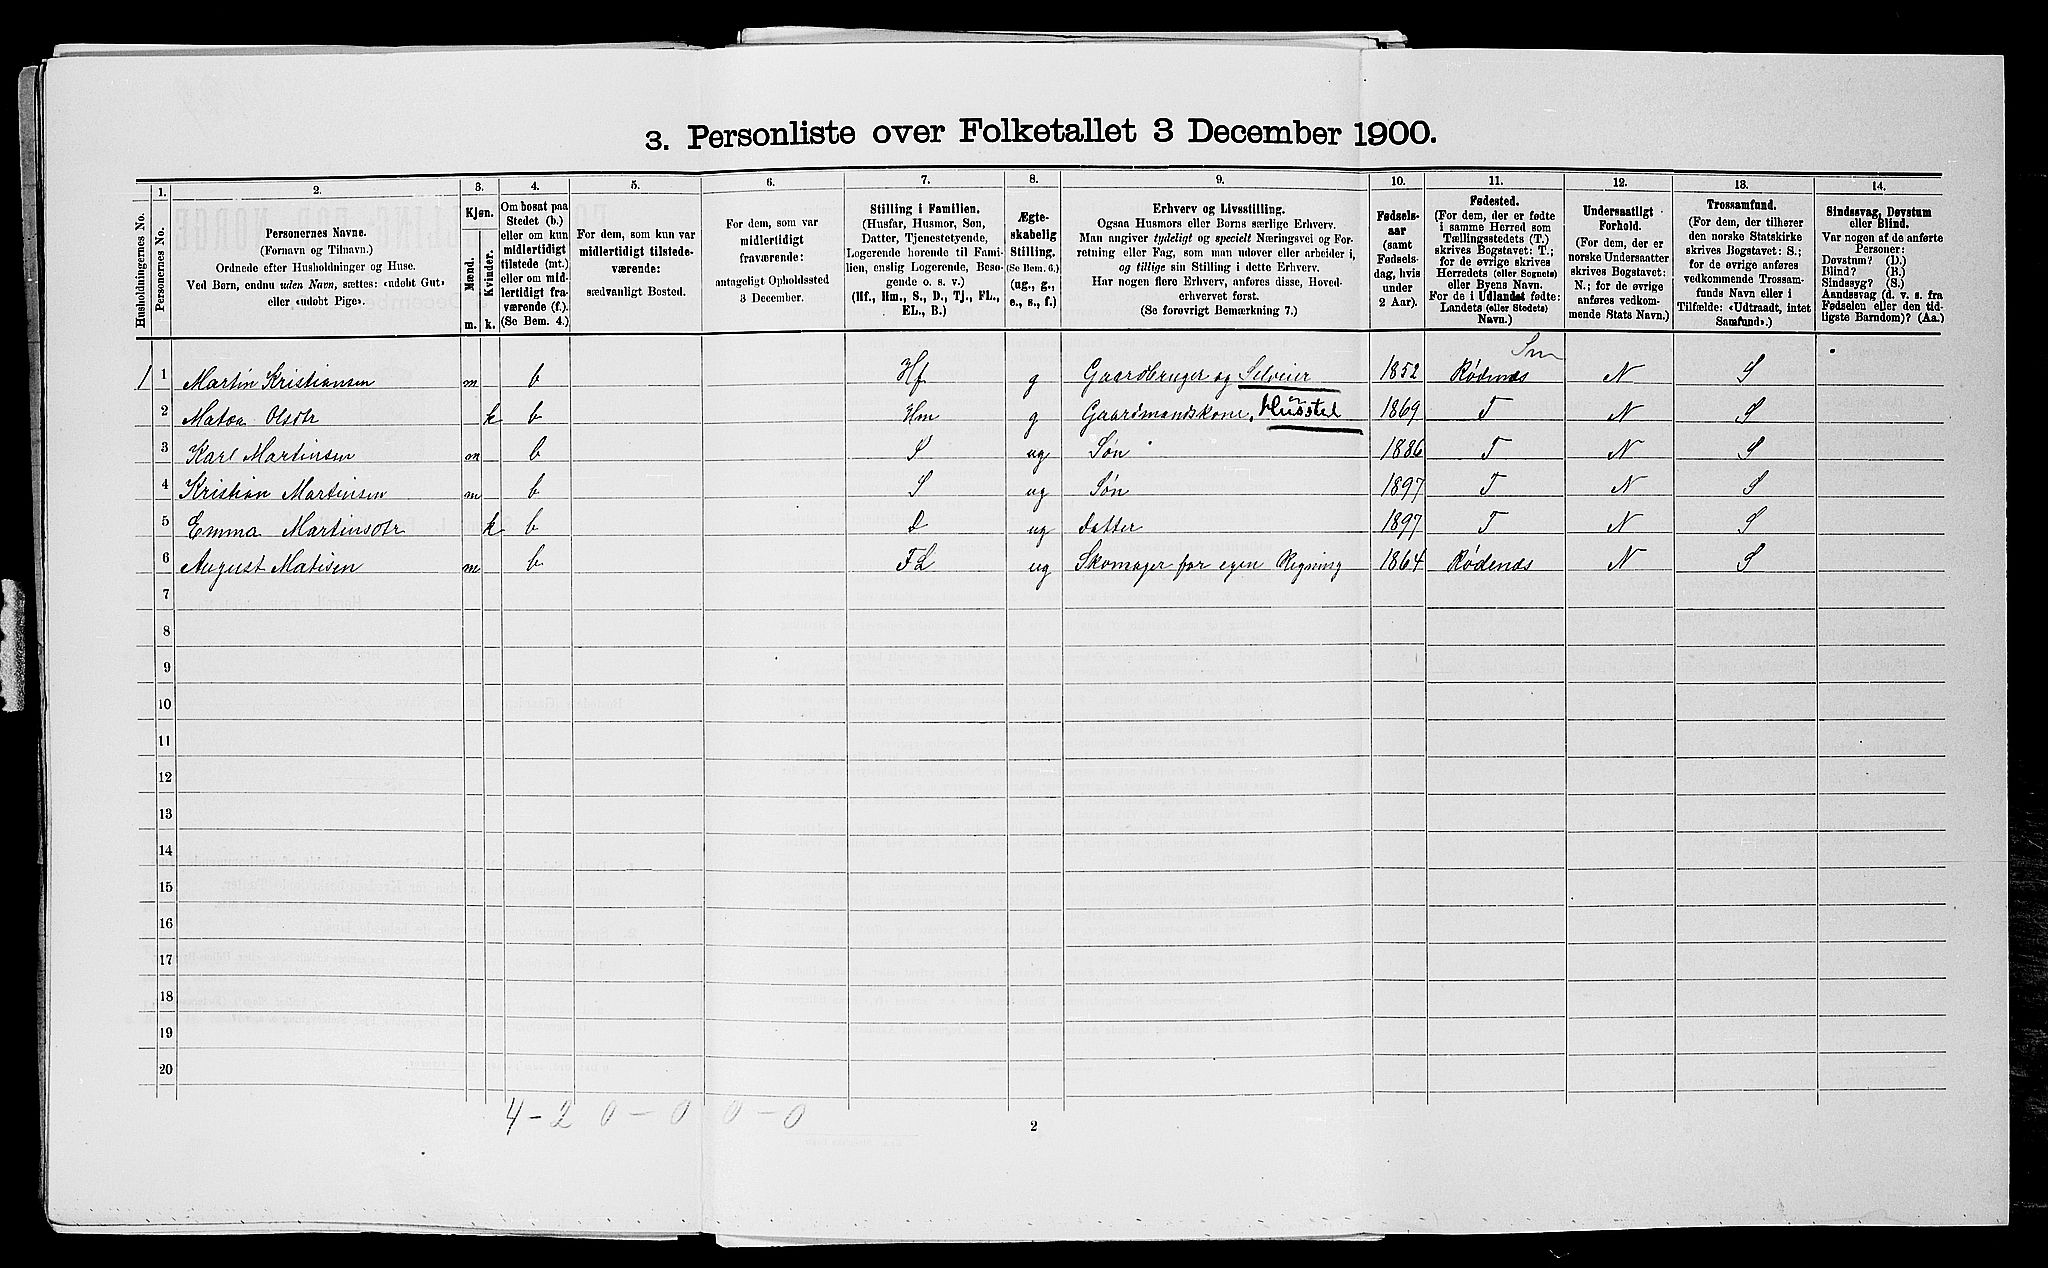 3. Personliste over Folketallet 3 December 1900.
Husholdningernes No.
1.
Personernes No.
2.
Personernes Navne.
(Fornavn og Tilnavn.)
Ordnede efter Husholdninger og Huse.
Ved Børn, endnu uden Navn, sættes: «udøbt Gut»
eller «udøbt Pige».
3.
Kjøn.
Mænd.
Kvinder.
m. k.
4.
Om bosat paa
Stedet (b.)
eller om kun
midlertidigt
tilstede (mt.)
eller om mid-
lertidigt fra-
værende (f.).
(Se Bem. 4.)
5.
For dem, som kun var
midlertidigt tilstede-
værende:
sædvanligt Bosted.
6.
For dem, som var
midlertidigt
fraværende:
antageligt Opholdssted
3 December.
7.
Stilling i Familien.
(Husfar, Husmor, Søn,
Datter, Tjenestetyende,
Logerende hørende til Fami-
lien, enslig Logerende, Besø-
gende o. s. v.)
(Hf., Hm., S., D., Tj., FL.,
EL., B.)
8.
Ægte-
skabelig
Stilling.
(Se Bem. 6.)
(ug., g.,
e., s., f.)
9.
Erhverv og Livsstilling.
Ogsaa Husmors eller Børns særlige Erhverv.
Man angiver tydeligt og specielt Næringsvei og For-
retning eller Fag, som man udøver eller arbeider i,
og tillige sin Stilling i dette Erhverv.
Har nogen flere Erhverv, anføres disse, Hoved-
erhvervet først.
(Se forøvrigt Bemærkning 7.)
10.
Fødsels-
aar
(samt
Fødsels-
dag, hvis
under
2 Aar).
11.
Fødested.
(For dem, der er fødte
i samme Herred som
Tællingsstedets (T.)
skrives Bogstavet: T.;
for de øvrige skrives
Herredets (eller Sognets)
eller Byens Navn.
For de i Udlandet fødte:
Landets (eller Stedets)
Navn.)
12.
Undersaatligt
Forhold.
(For de, der er
norske Undersaatter
skrives Bogstavet:
N.; for de øvrige
anføres vedkom-
mende Stats Navn.)
13.
Trossamfund.
(For dem, der tilhører
den norske Statskirke
skrives Bogstavet: S.;
for de øvrige anføres
vedkommende Trossam-
funds Navn eller i
Tilfælde: «Udtraadt, intet
Samfund».)
14.
Sindssvag, Døvstum
eller Blind.
Var nogen af de anførte
Personer:
Døvstum? (D.)
Blind? (B.)
Sindssyg? (S.)
Aandssvag (d. v. s. fra
Fødselen eller den tid-
ligste Barndom)? (Aa.)
1 1 Martin Kristiansen m b Hf g Gaardbruger og Selveier 1852 Rødenæs N S
2 Matea Olsdtr k b Hm g Gaardmandskone, Husstel 1869 T N S
3 Karl Martinsen m b S ug Søn 1886 T N S
4 Kristian Martinsen m b S ug Søn 1897 T N S
5 Emma Martinsdtr k b D ug Datter 1897 T N S
6 August Matisen m b FL ug Skomager for egen Regning 1864 Rødenæs N S
7
8
9
10
11
12
13
14
15
16
17
18
19
20
4 - 2 0 - 0 0 - 0
2